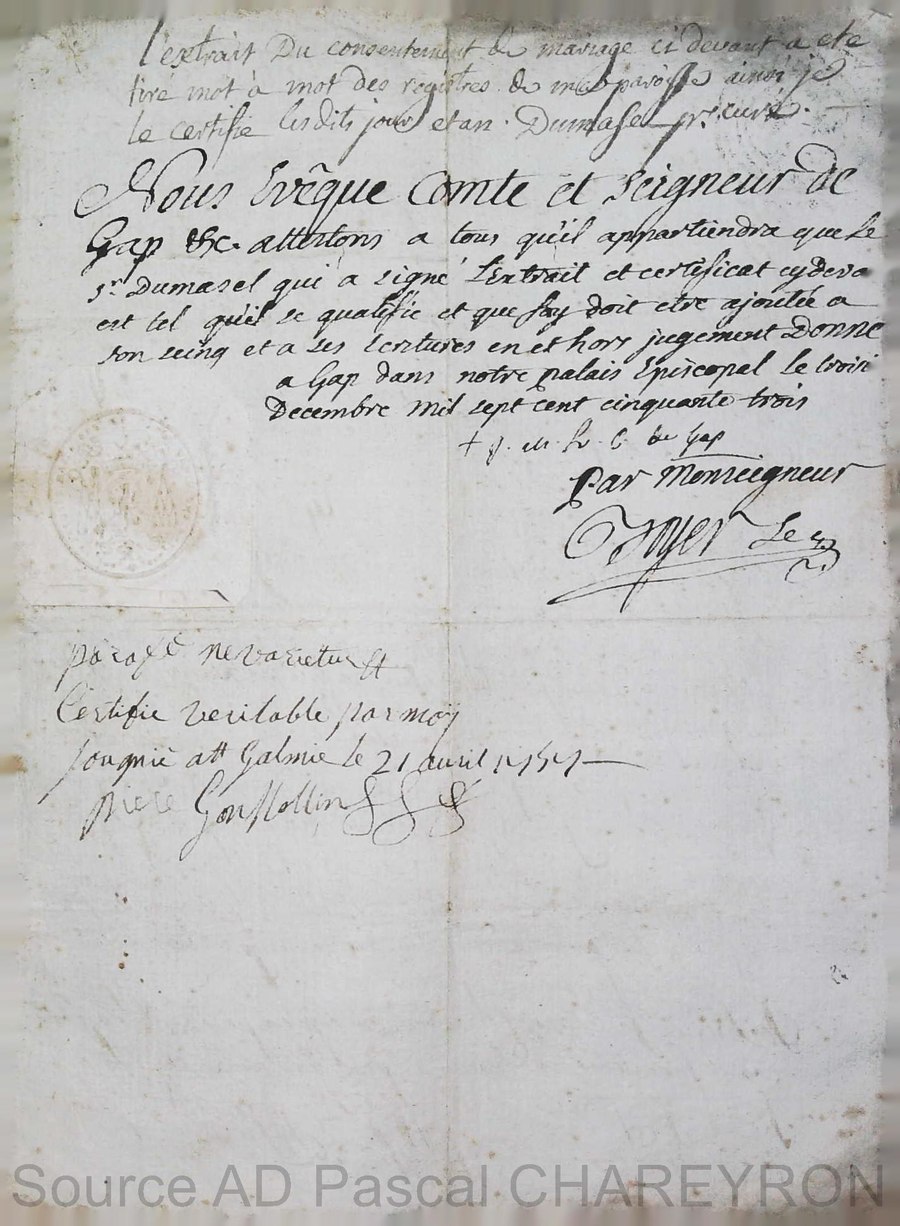 l'extrait Du consentement de mariage ci devant a ete
tiré mot à mot des registres de ma paroisse ainsi je
le certifie lesdits jour et an. Dumasel pr. curé.
Nous Evêque Comte et Seigneur de
Gap &c. attestons a tous qu'il appartiendra que le
sr. Dumasel qui a signé l'Extrait et certificat cydeva
est tel qu'il se qualifie et que foy doit etre ajoutée a
son seing et a ses Ecritures en et hors jugement Donné
a Gap dans notre palais Episcopal le troisi
Decembre mil sept cent cinquante trois
de Gap
Par Monseigneur
paraffé nevarietur
Certifie veritable par moy
a st Galmie le 21 avril
Source AD Pascal CHAREYRON